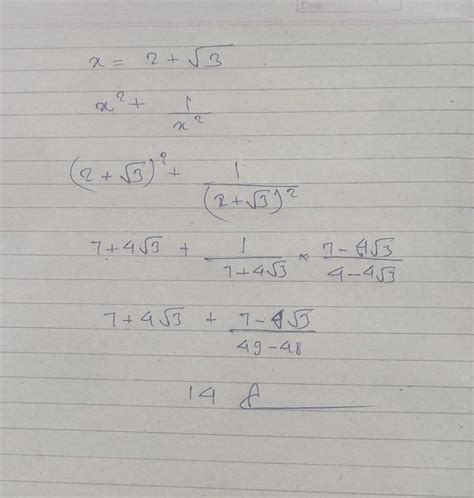 Date
x = 2 + √3
x² + 1/x²
(2 + √3)² + 1/(2 + √3)²
7 + 4√3 + 1/(7 + 4√3) × (7 - 4√3)/(4 - 4√3)
7 + 4√3 + (7 - 4√3)/(49 - 48)
14